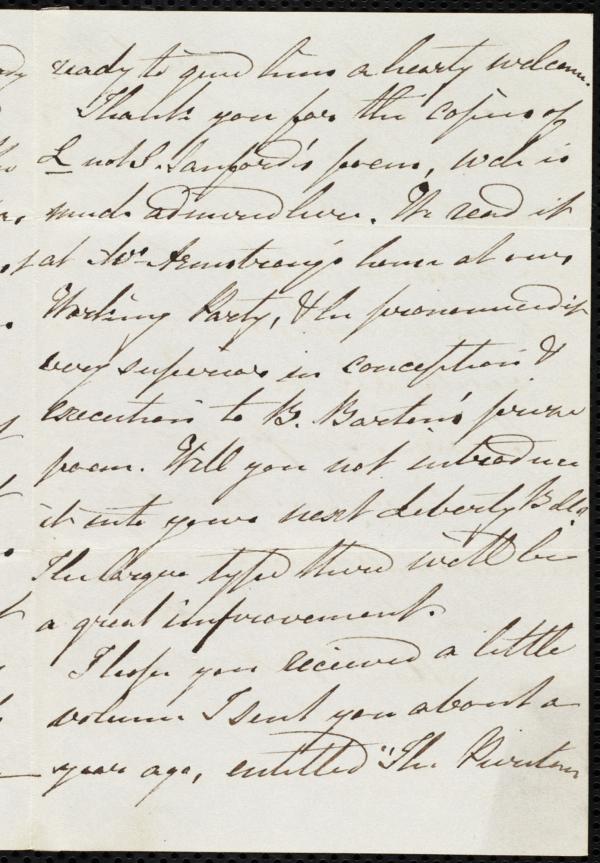 ready to give him a hearty welcome.
Thank you for the copies of
L not S. Sanford's poem, wch is
much admired here. We read it
at Mrs Armstrong's house at our
Working Party, & he pronounced it
very superior in conception &
execution to B. Barton's prize
poem. Will you not introduce
it into your next Liberty Bell
The large type there will be
a great improvement.
I hope you received a little
volume I sent you about a
year ago, entitled "The Puritan